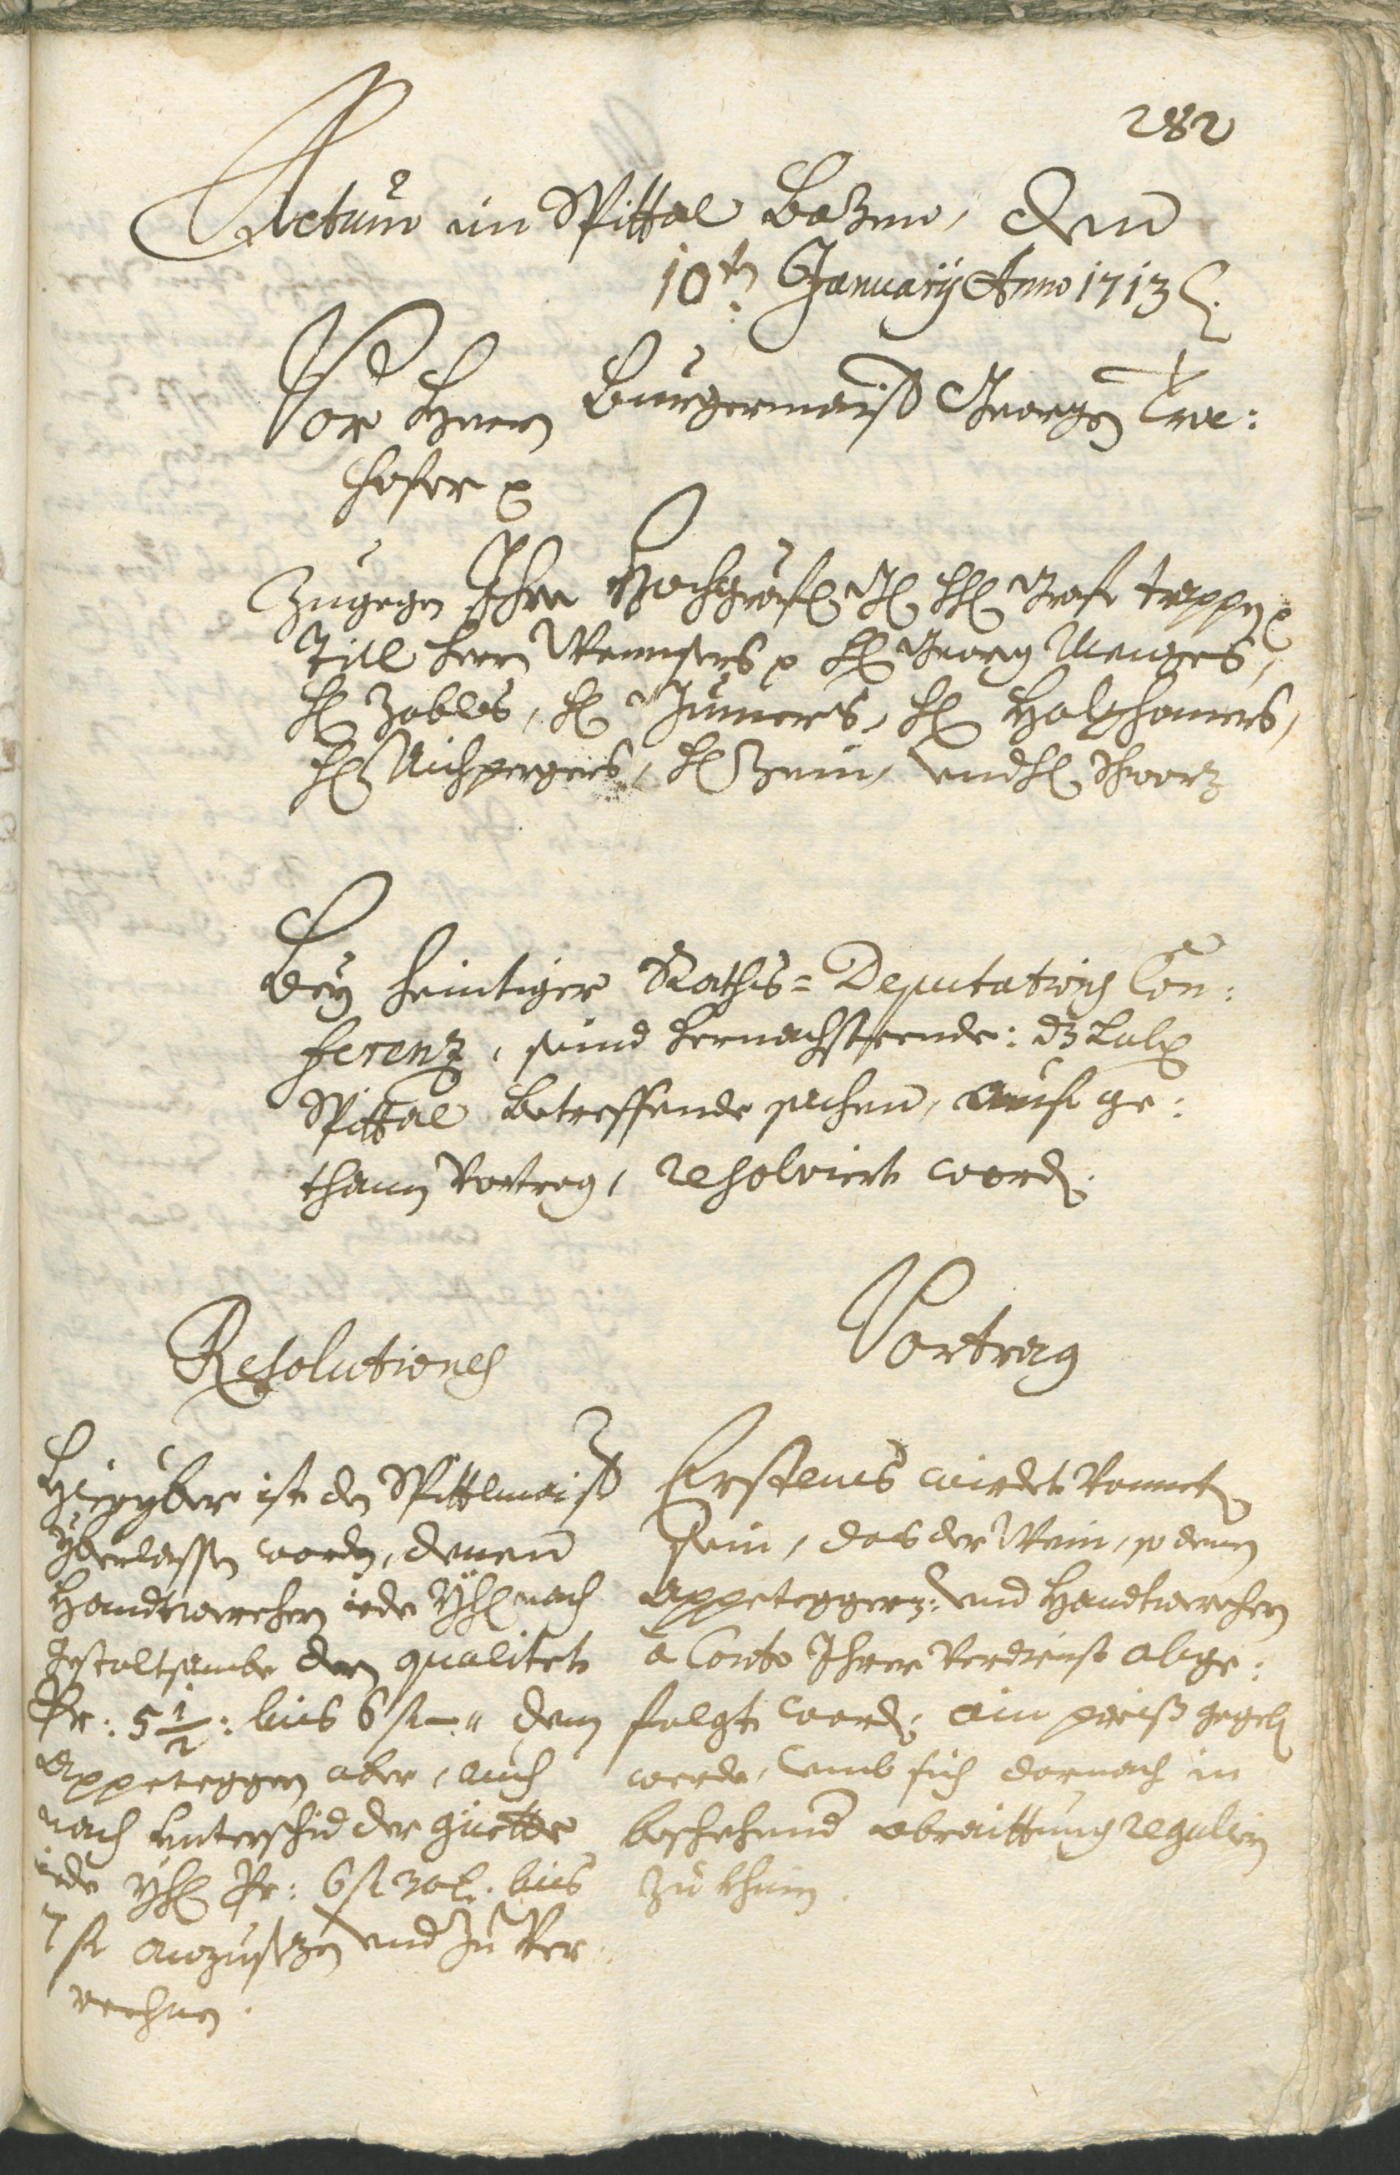 282
Actum im Spittal Bozen, den
10.tn January Anno 1713
Vor Herrn Burgermaister Georgen Tre:
hofer
Zugegen Ihro Hochgräfl. H. Graf Trappen
Titl Herrn Wennsers H. Georg Menges,
H. Zoblers, H. Jumers, H. Holzhamers,
H. Aichpergers, H. Zein, und H. Schwarz
Bey heintiger Raths= Deputations Con:
ferenz, seind hernachsteende: dz Lobl.
Spittal betreffende sachen, auf ge:
thanen Vortrag, resolviert word.
Resolutiones
Hieryber ist den Spittlmaister
yberlassen worden, denen
Handtwerchern iede Yhrn nach
gestaltsambe der qualitet
Pr: 5 1/2: bis 6 f —. den
Appoteggern aber, auch
nach unterschid der güette
iede Yhrn Pr: 6 f 30 k. bis
7 f anzusezen und zu Ver:
rechnen.
Vortrag
Erstens wirdet vonneten
sein, das der Wein, so denen
Appoteggern: und Handtwerchern
a Conto Ihrer Verdienst abge:
folgt word. ain preiß gegeben
werde, umb sich darnach in
beschehend abraittung regulirn
zu khinen.